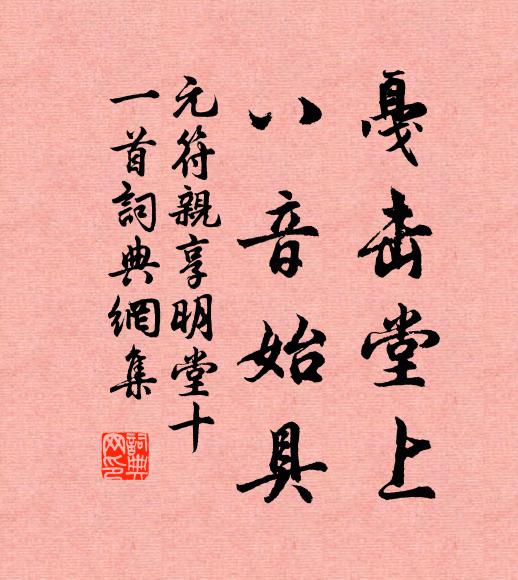 戛击堂上
八音始具
元符親享明堂十
一首詞典網集
詞典网印